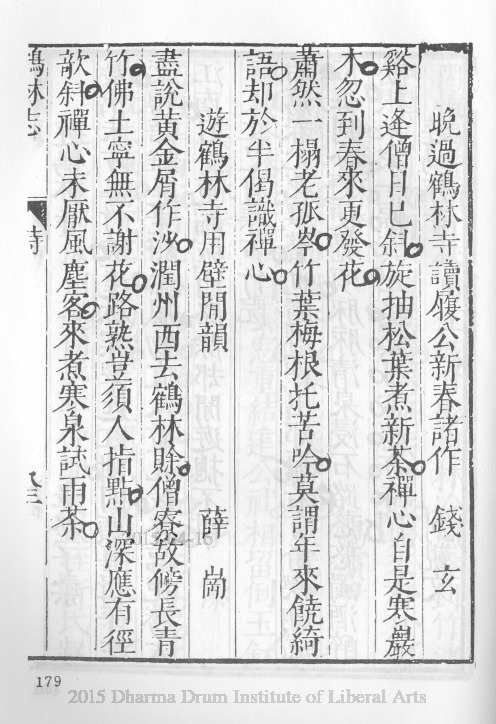 晚過鶴林寺讀履公新春諸作 錢玄
谿上逢僧日已斜旋抽松葉煮新茶禪心自是寒巖
木忽到春來更發花
蕭然一榻老孤岑竹葉梅根托苦吟莫謂年來饒綺
語却於半偈識禪心
遊鶴林寺用壁間韻 薛岡
盡說黃金屑作沙潤州西去鶴林賖僧寮故傍長青
竹佛土寧無不謝花路熟豈須人指點山深應有徑
欹斜禪心未厭風塵客來煮寒泉試雨茶
鶴林志 詩
179
2015 Dharma Drum Institute of Liberal Arts